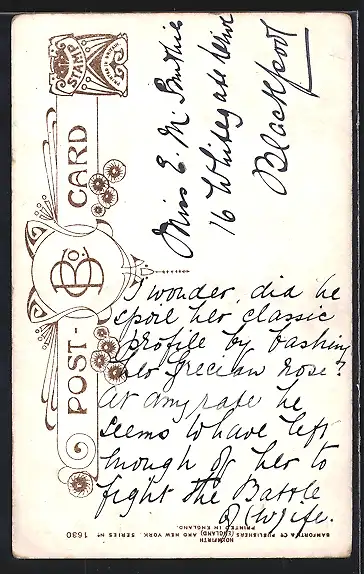 STAMP
POST-CARD
B Co.
Miss E. M. Smithies
16 Whitegate Drive
Blackpool
I wonder, did he
spoil her classic
profile by bashing
her Grecian nose?
At any rate he
seems to have left
enough of her to
fight the Battle
of (w)ife.
BAMFORTH & CO PUBLISHERS (ENGLAND) AND NEW YORK. SERIES No 1630
HOLMFIRTH
PRINTED IN ENGLAND.